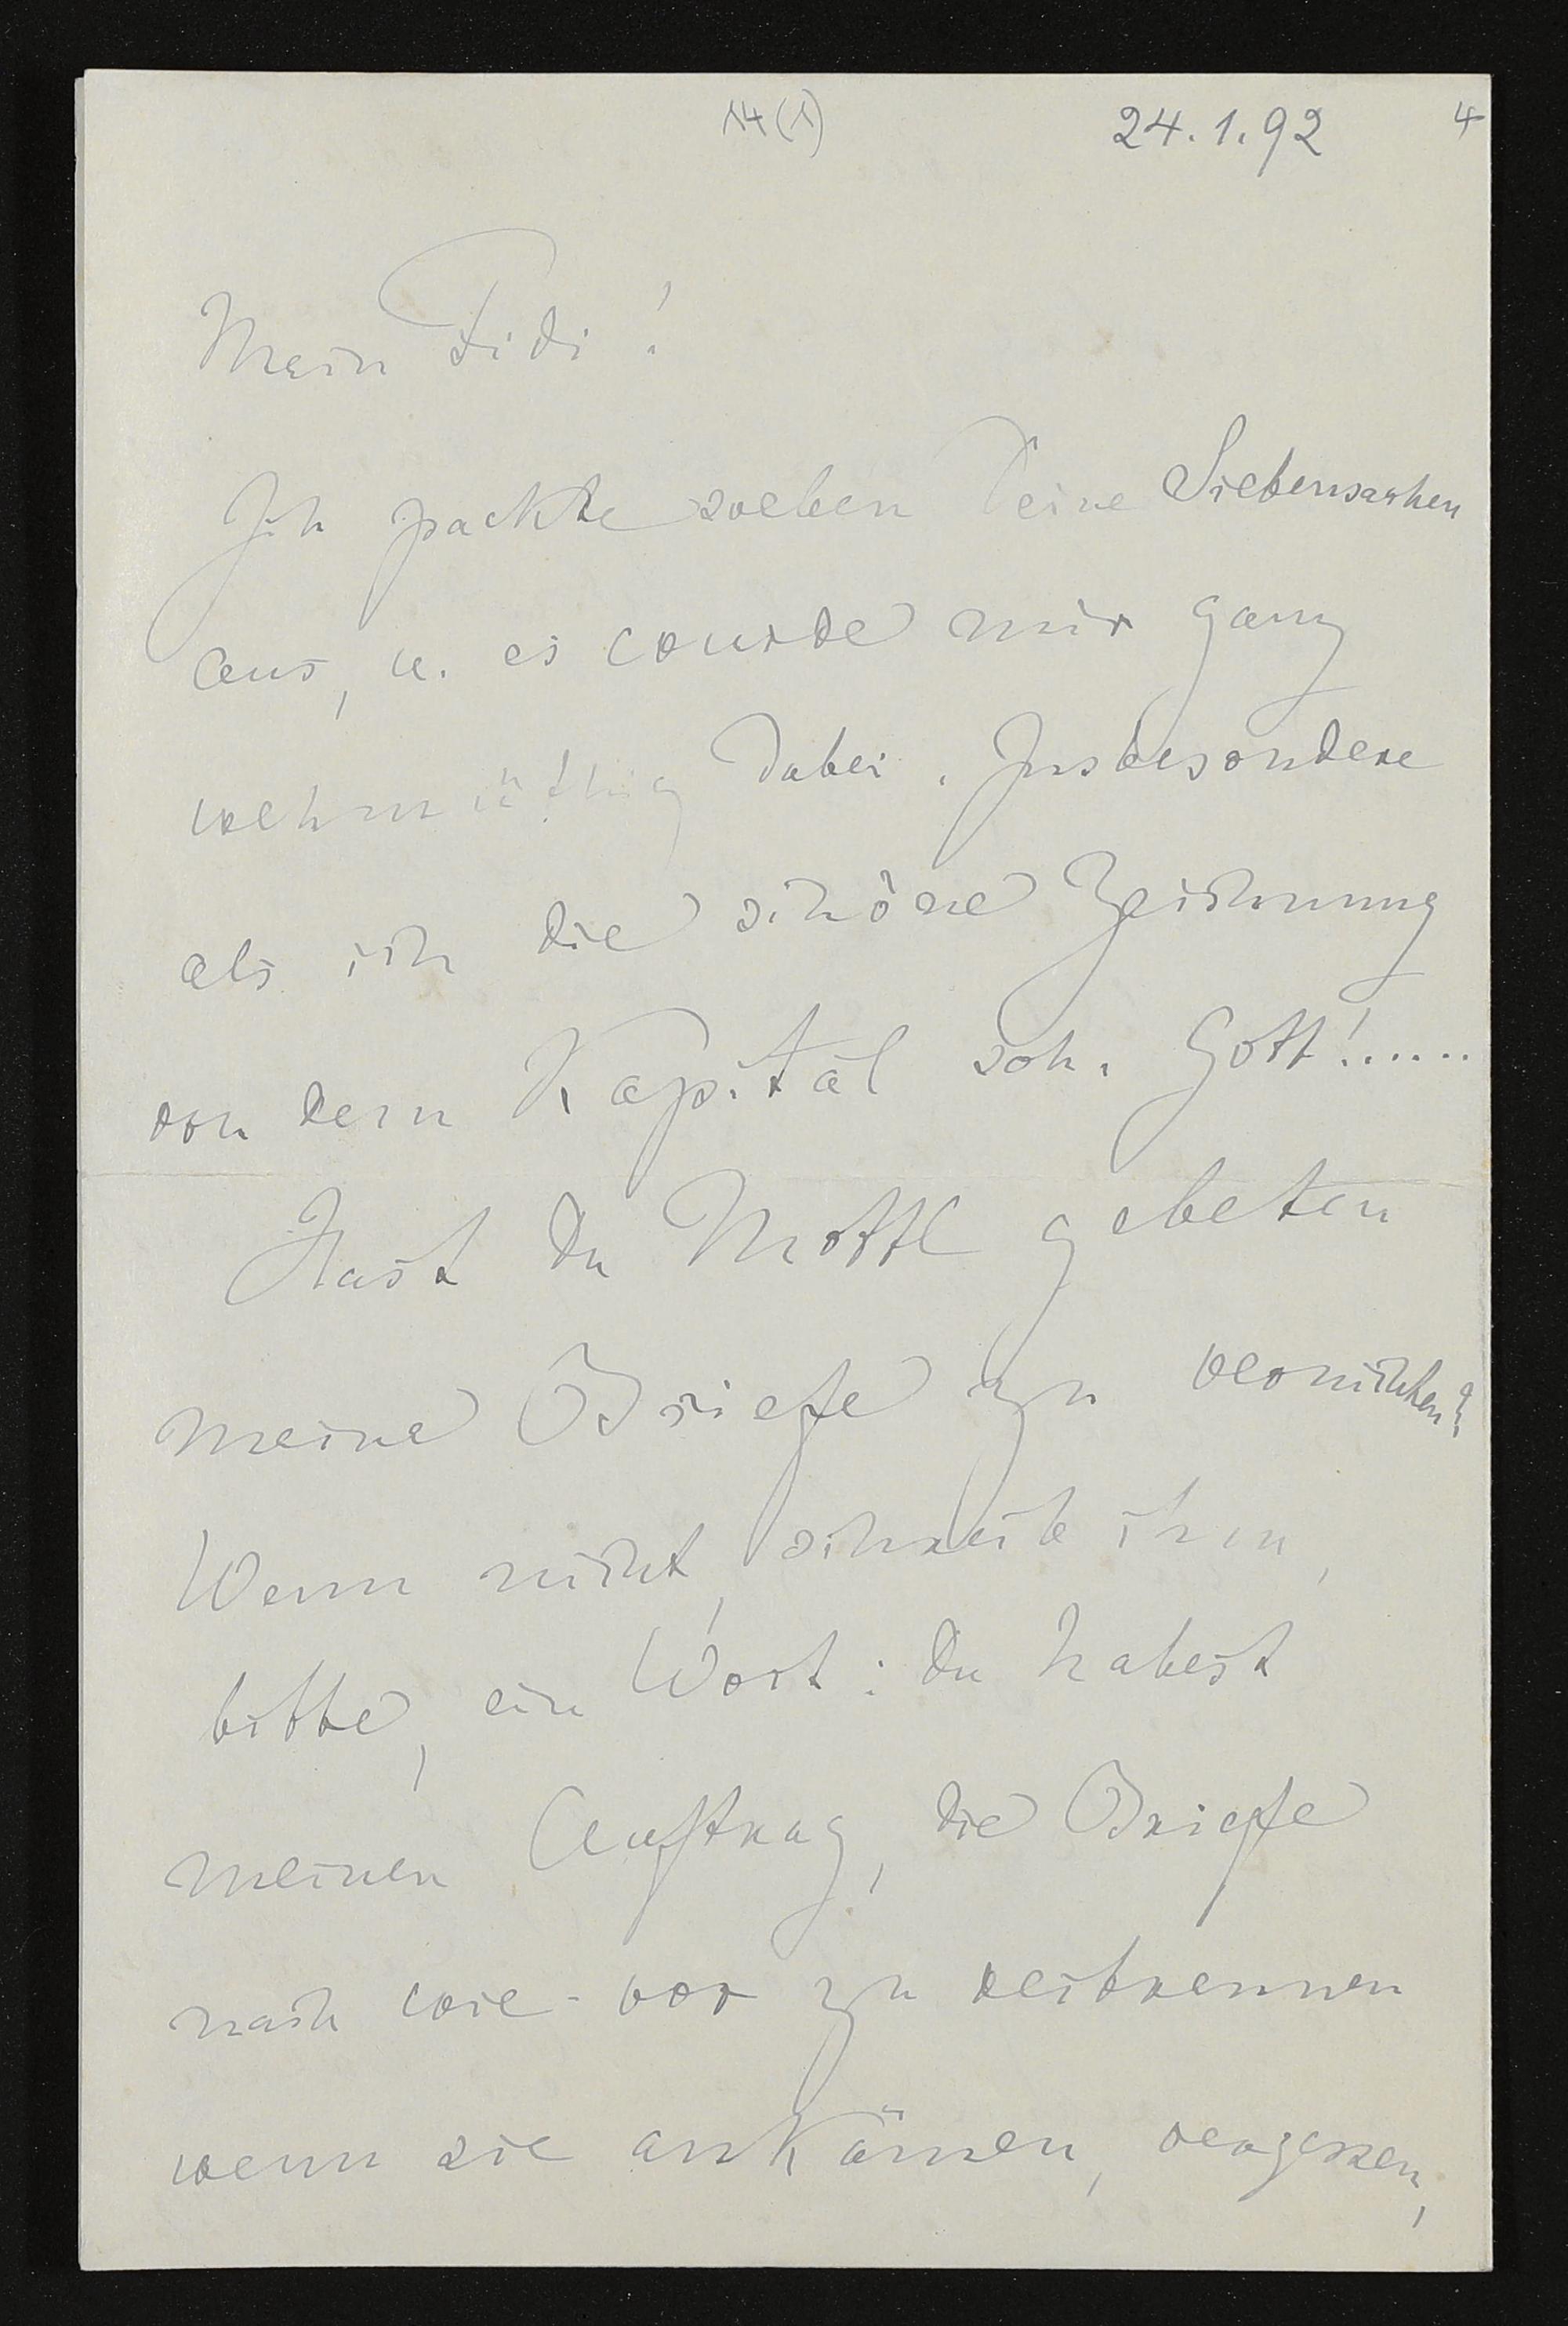 14(1) 24.1.92 4
Mein Fidi!
Ich packte soeben Deine Siebensachen
aus, u. es wurde mir ganz
wehmüthig dabei. Insbesondere
als ich die schöne Zeichnung
von dem Kapitäl sah. Gott!......
Hast du Mottl gebeten
meine Briefe zu vernichten?
Wenn nicht, schreib ihm,
bitte, ein Wort: du habest
meinen Auftrag, die Briefe
nach wie-vor zu verbrennen
wenn sie ankämen, vergessen,